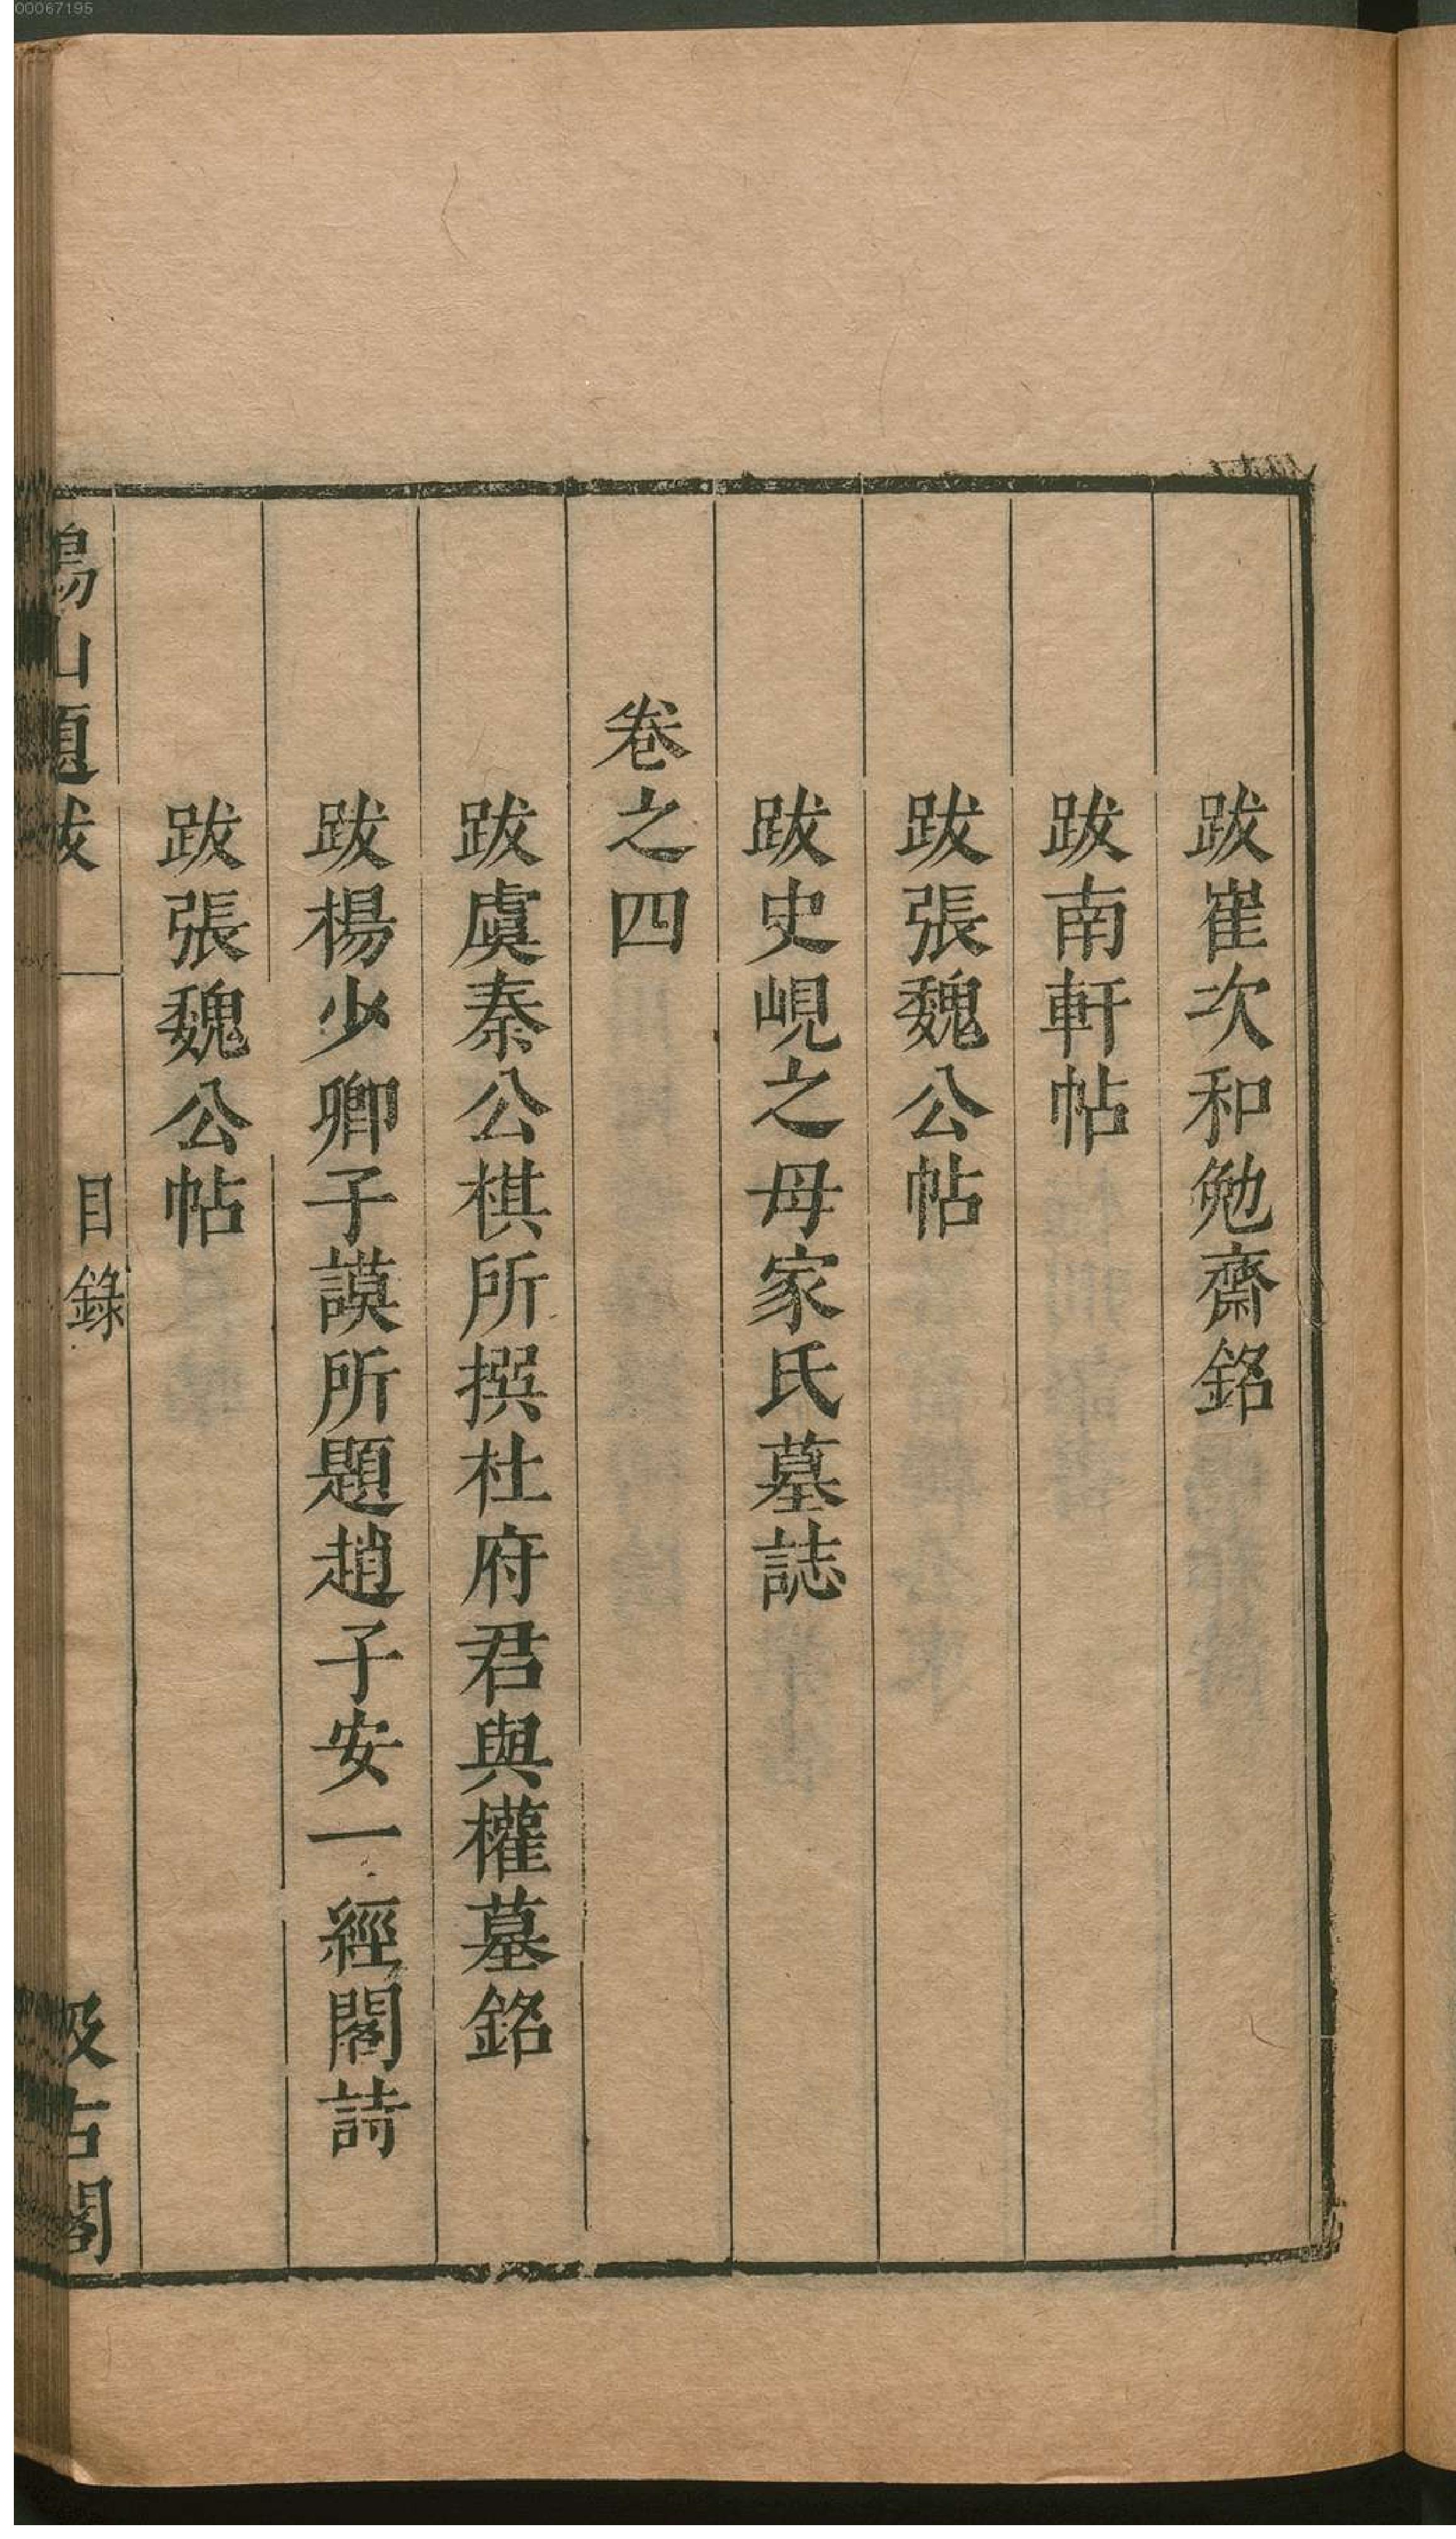 跋崔次和勉齋銘
跋南軒帖
跋張魏公帖
跋史峴之母家氏墓誌
卷之四
跋虞秦公棋所撰杜府君與權墓銘
跋楊少卿子謨所題趙子安一經閣詩
跋張魏公帖
山題跋
目錄
古閣
00067195